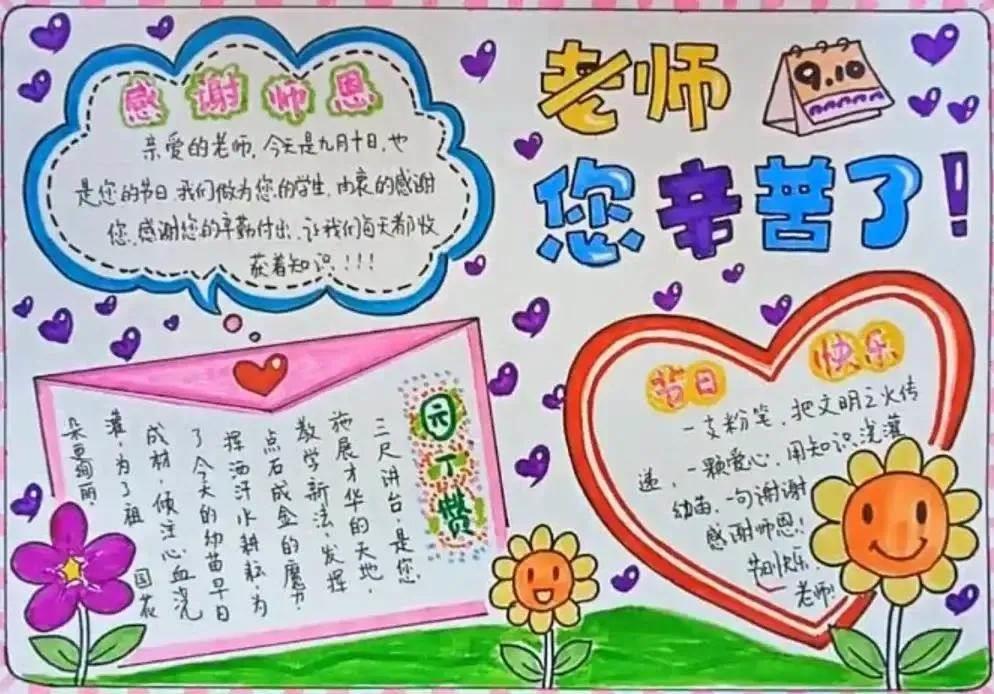 感谢师恩
亲爱的老师,今天是九月十日,也
是您的节日,我们做为您的学生,内衷的感谢
您,感谢您的辛勤付出,让我们每天都收
获着知识!!!
老师
9.10
您辛苦了!
园丁赞
三尺讲台,是您
施展才华的天地,
教学新法,发挥
点石成金的魔力,
挥洒汗水耕耘,为
了今天的幼苗早日
成材,倾注心血浇
灌,为了祖国花
朵更绚丽.
节日快乐
一支粉笔,把文明之火传
递,一颗爱心,用知识浇灌
幼苗,一句谢谢
感谢师恩!
节日快乐,
老师!